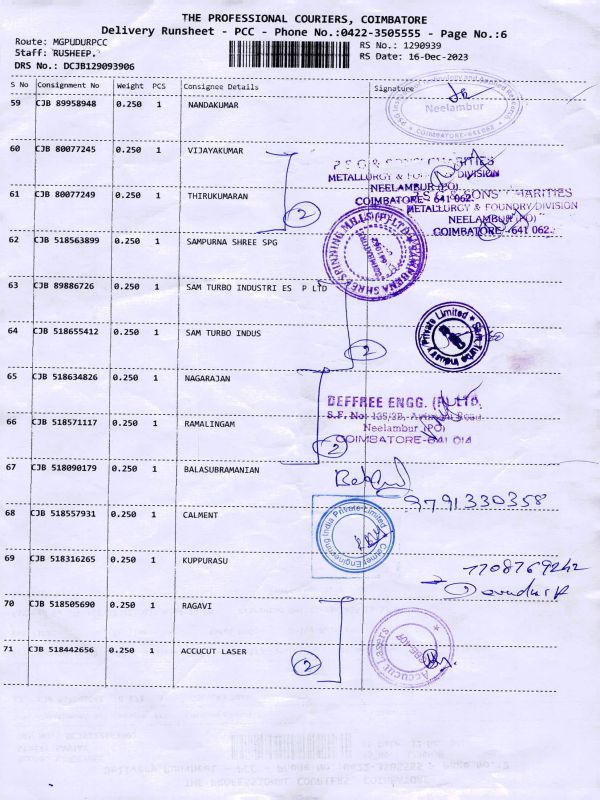 THE PROFESSIONAL COURIERS, COIMBATORE
Delivery Runsheet - PCC - Phone No.:0422-3505555 - Page No.:6
Route: MGPUDURPCC
Staff: RUSHEEP.
DRS No.: DCJB129093906
RS No.: 1290939
RS Date: 16-Dec-2023
S No Consignment No Weight PCS Consignee Details Signature
59 CJB 89958948 0.250 1 NANDAKUMAR
Neelambur
COIMBATORE-641062
60 CJB 80077245 0.250 1 VIJAYAKUMAR
P.S.G & SONS' CHARITIES
METALLURGY & FOUNDRY DIVISION
NEELAMBUR (PO)
COIMBATORE - 641 062.
61 CJB 80077249 0.250 1 THIRUKUMARAN
2
P.S.G & SONS' CHARITIES
METALLURGY & FOUNDRY DIVISION
NEELAMBUR (PO)
COIMBATORE - 641 062.
62 CJB 518563899 0.250 1 SAMPURNA SHREE SPG
63 CJB 89886726 0.250 1 SAM TURBO INDUSTRI ES P LTD
64 CJB 518655412 0.250 1 SAM TURBO INDUS
2
Sam Turbo Industry Private Limited
65 CJB 518634826 0.250 1 NAGARAJAN
DEFFREE ENGG. (P) LTD.
S.F. No. Road
Neelambur (PO)
COIMBATORE-641 014
66 CJB 518571117 0.250 1 RAMALINGAM
2
67 CJB 518090179 0.250 1 BALASUBRAMANIAN
9791330358
68 CJB 518557931 0.250 1 CALMENT
India Private Limited
69 CJB 518316265 0.250 1 KUPPURASU
70 CJB 518505690 0.250 1 RAGAVI
71 CJB 518442656 0.250 1 ACCUCUT LASER
2
Accucut Lasers